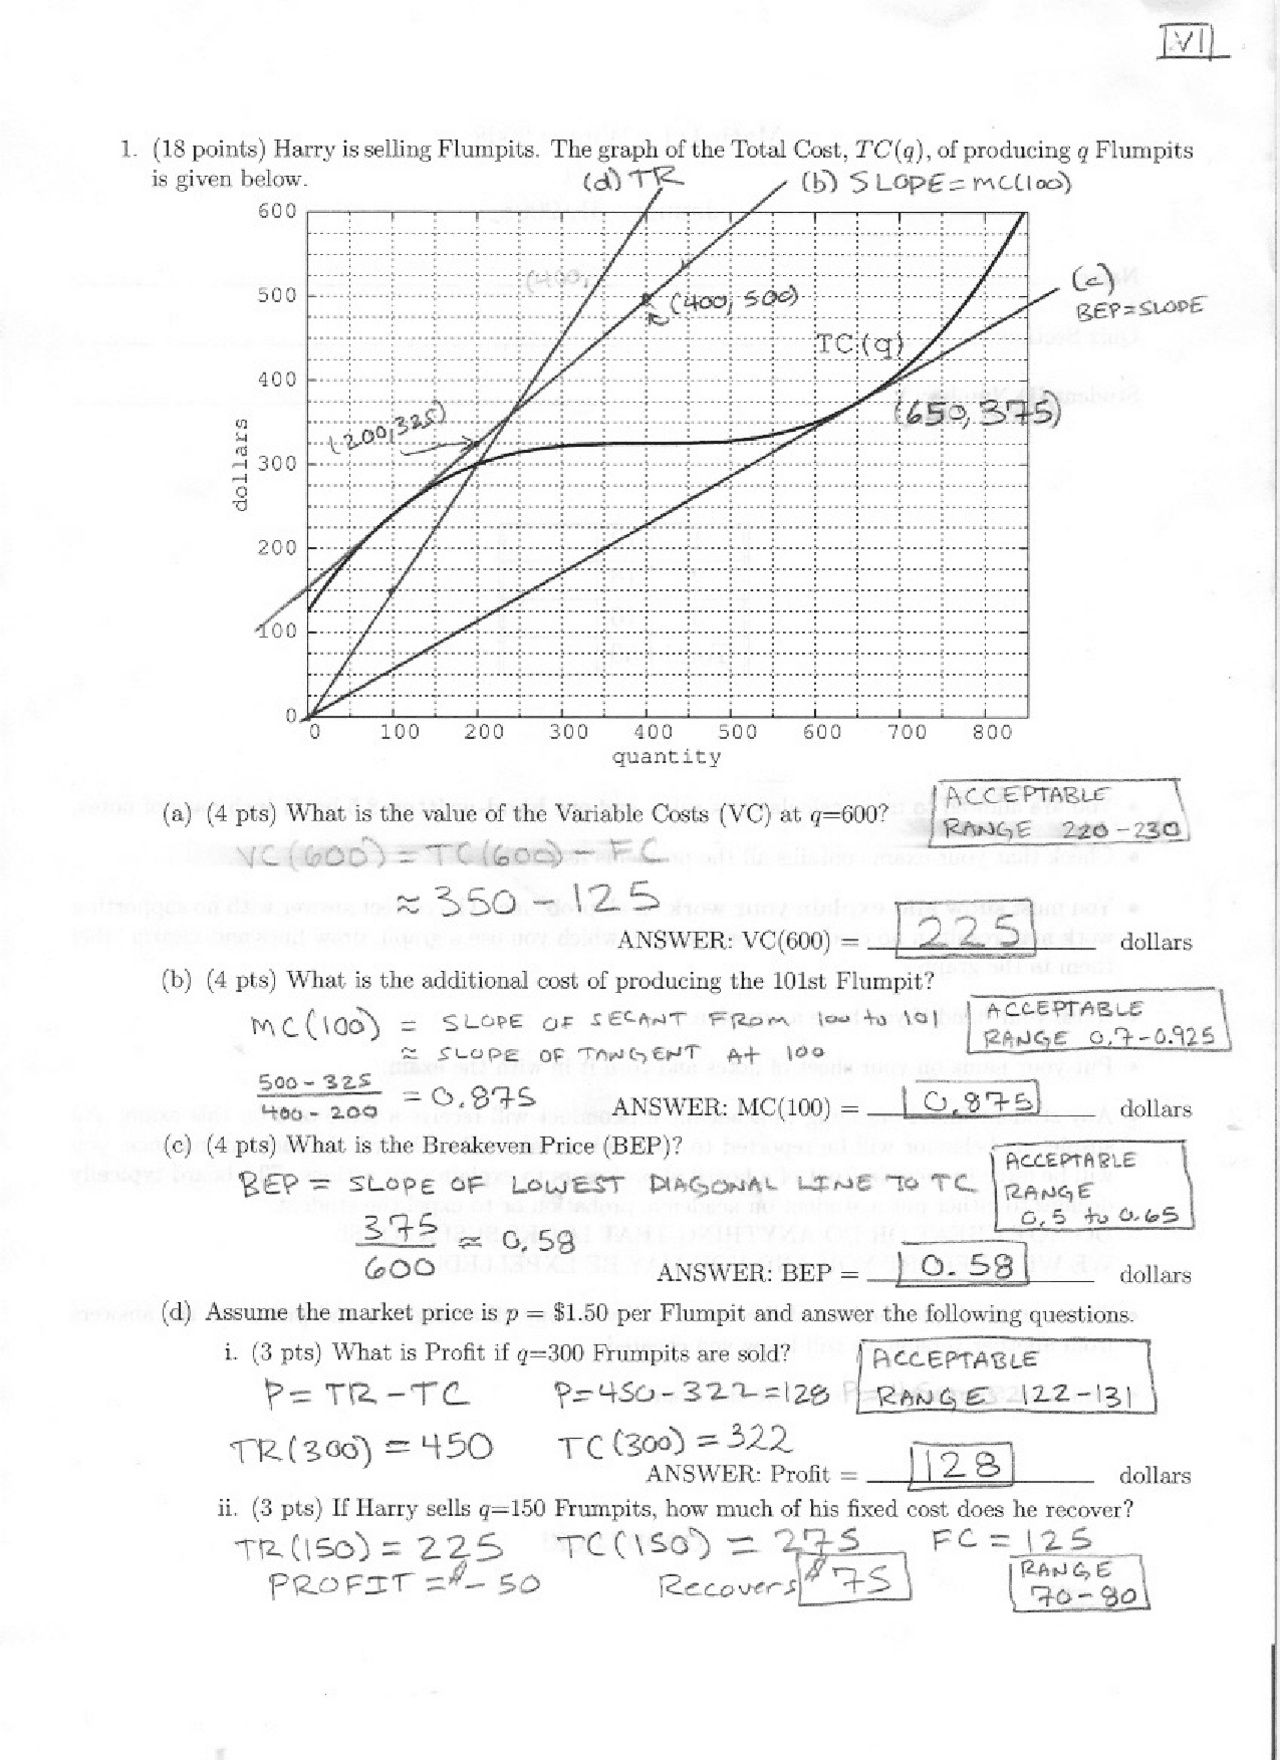 VI
1. (18 points) Harry is selling Flumpits. The graph of the Total Cost, TC(q), of producing q Flumpits
is given below.
(d) TR
(b) SLOPE = MC(100)
600
500
400
300
200
100
0
dollars
(400,
(400, 500)
(c)
BEP = SLOPE
TC(q)
(650, 375)
(200, 325)
0 100 200 300 400 500 600 700 800
quantity
(a) (4 pts) What is the value of the Variable Costs (VC) at q=600?
ACCEPTABLE
RANGE 220-230
VC(600) = TC(600) - FC
≈ 350 - 125
ANSWER: VC(600) = 225 dollars
(b) (4 pts) What is the additional cost of producing the 101st Flumpit?
ACCEPTABLE
RANGE 0.7-0.925
MC(100) = SLOPE OF SECANT FROM 100 to 101
≈ SLOPE OF TANGENT AT 100
500-325
400-200
= 0.875
ANSWER: MC(100) = 0.875 dollars
(c) (4 pts) What is the Breakeven Price (BEP)?
ACCEPTABLE
RANGE
0.5 to 0.65
BEP = SLOPE OF LOWEST DIAGONAL LINE TO TC
375
600
≈ 0.58
ANSWER: BEP = 0.58 dollars
(d) Assume the market price is p = $1.50 per Flumpit and answer the following questions.
i. (3 pts) What is Profit if q=300 Frumpits are sold?
ACCEPTABLE
RANGE 122-131
P = TR - TC P = 450 - 322 = 128
TR(300) = 450 TC(300) = 322
ANSWER: Profit = 128 dollars
ii. (3 pts) If Harry sells q=150 Frumpits, how much of his fixed cost does he recover?
TR(150) = 225 TC(150) = 275 FC = 125
PROFIT = $-50 Recovers $75
RANGE
70-80